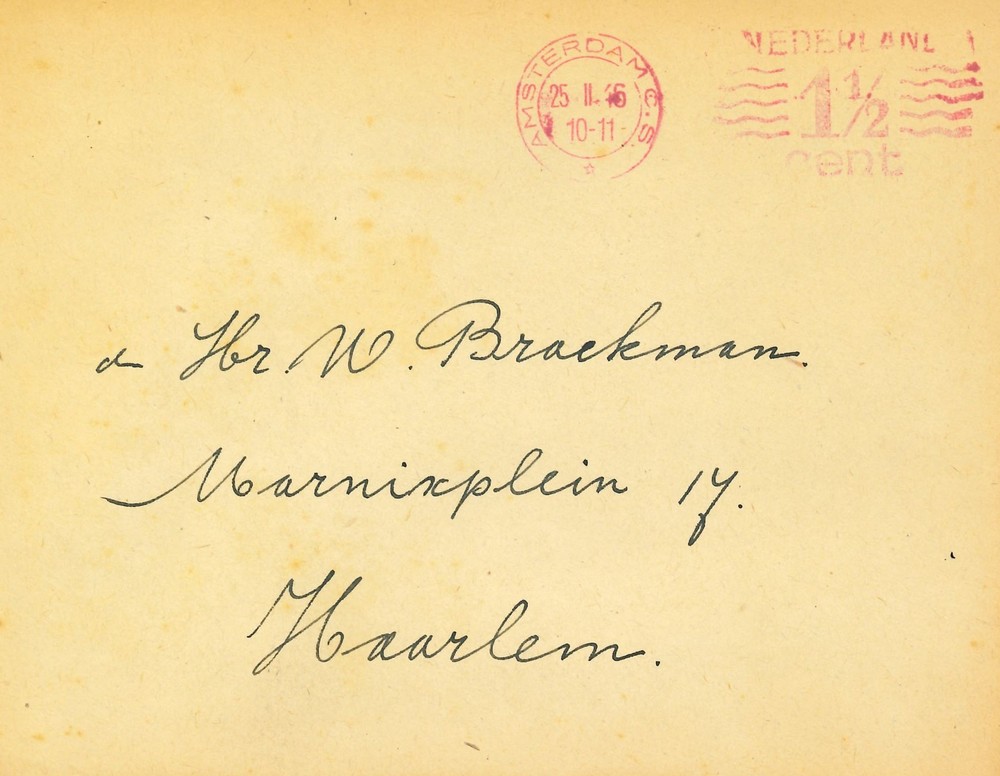 AMSTERDAM C.S.
25 II 46
10-11
NEDERLAND
1½
cent
d Hr. W. Broekman.
Marnixplein 17.
Haarlem.